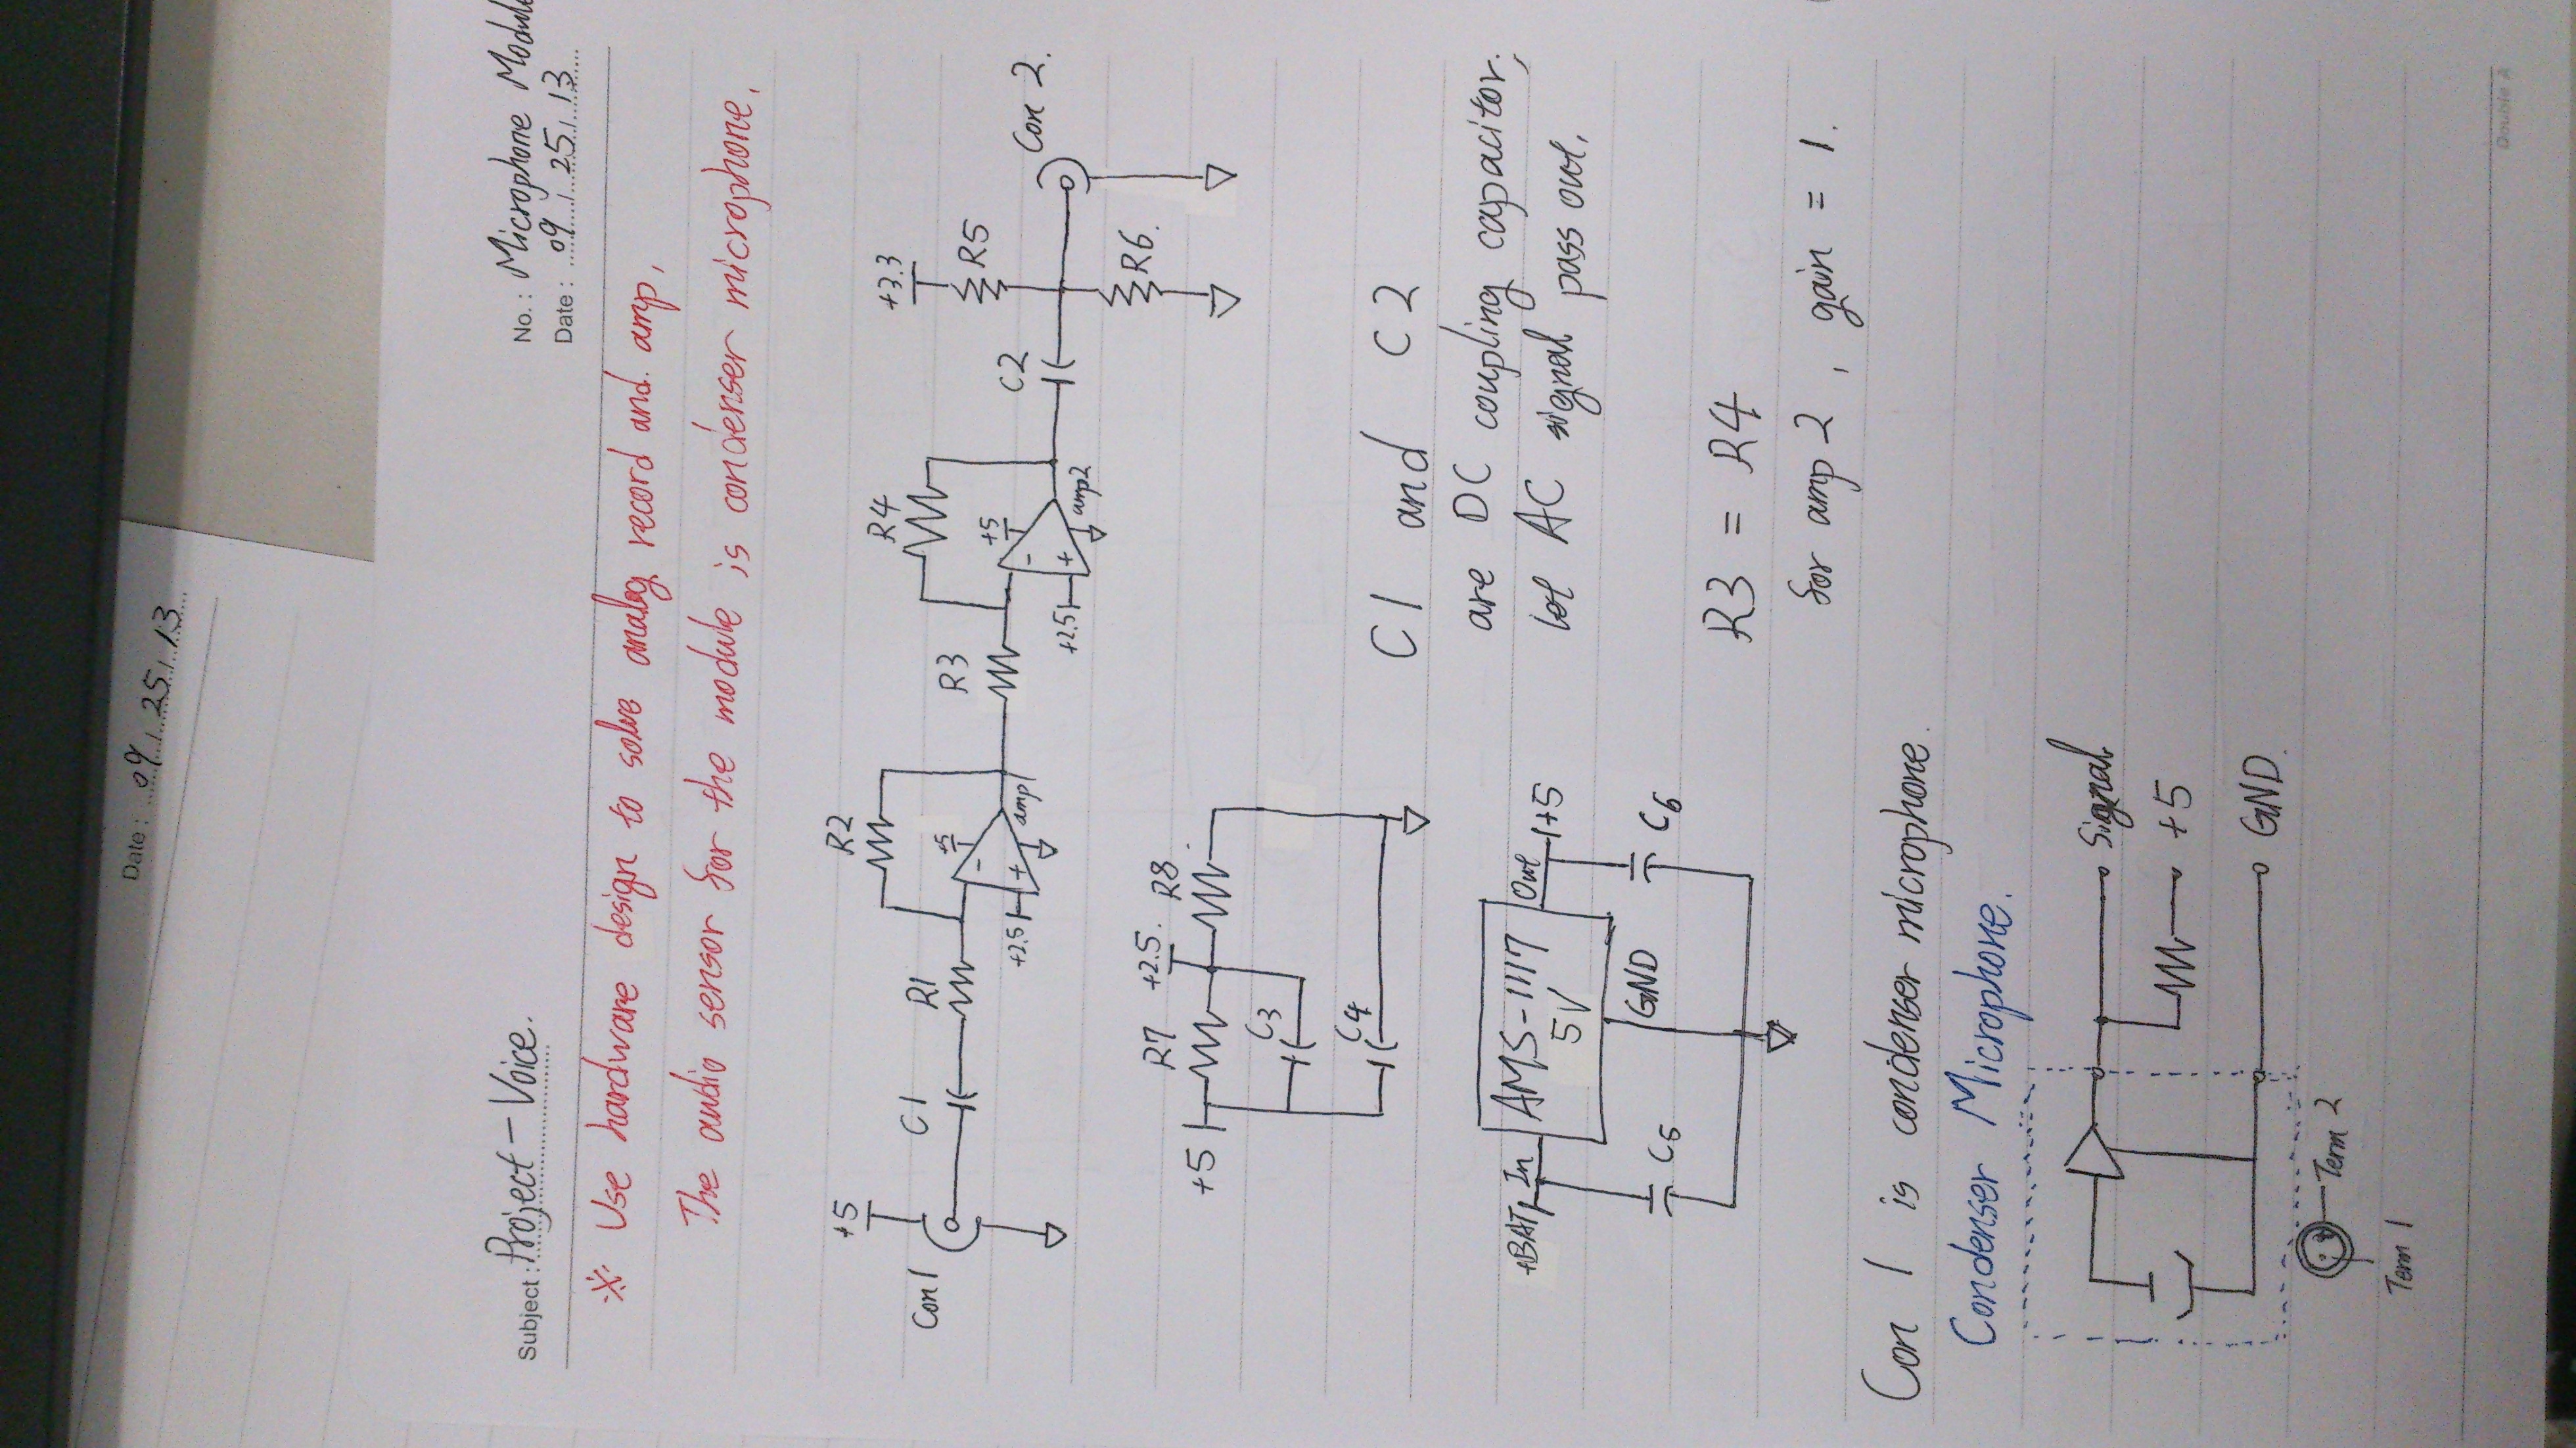 Date : 09 / 25 / 13
Subject : Project - Voice.
No. : Microphone Module
Date : 09 / 25 / 13
※ Use hardware design to solve analog record and. amp,
The audio sensor for the module is condenser microphone.
+5
R2
R4
+3.3
Con 1
C1
R1
+5
R3
R5
+2.5
-
+
amp1
+5
C2
Con 2.
+2.5
-
+
amp2
R6.
R7
+2.5.
R8
+5
C3
C4
C1 and C2
are DC coupling capacitor,
let AC signal pass out.
+BAT
In
AMS-1117
5V
Out
+5
GND
C5
C6
R3 = R4
for amp 2, gain = 1.
Con 1 is condenser microphone.
Condenser Microphone.
Signal
+5
GND.
Term 2
Term 1
Double A